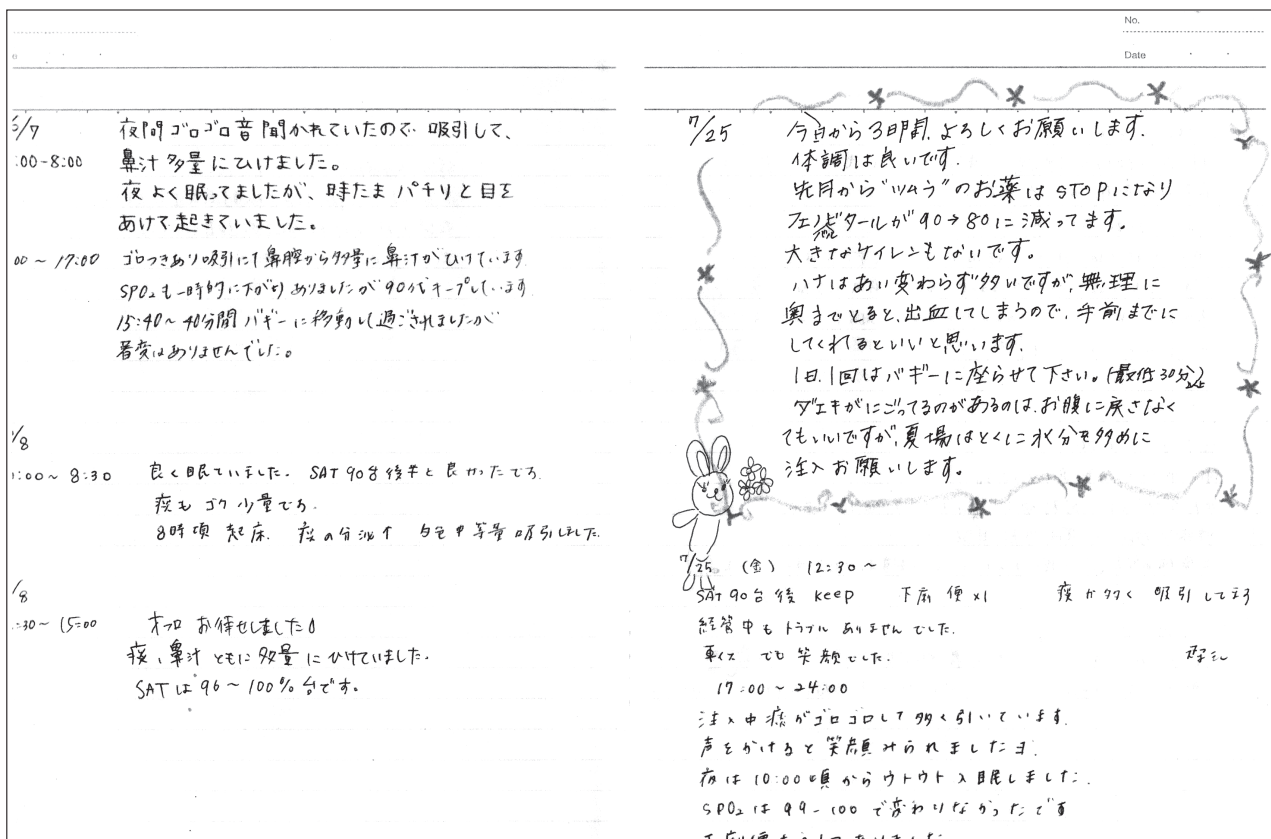 6/7
:00-8:00
夜間ゴロゴロ音聞かれていたので吸引して、
鼻汁多量にひけました。
夜よく眠ってましたが、時たまパチリと目を
あけて起きていました。
00～17:00
ゴロつきあり吸引にて鼻腔から多量に鼻汁がひけています
SPO₂も一時的に下がりありましたが90代キープしています
15:40～40分間バギーに移動して過ごされましたが
著変はありませんでした。
/8
:00～8:30
良く眠ていました。SAT 90台後半と良かったです。
痰もゴク少量です。
8時頃起床。痰の分泌↑ 白色中等量吸引しました。
/8
:30～15:00
オフロお待せしました
痰、鼻汁ともに多量にひけていました。
SATは96～100%台です。
No.
Date
7/25
今日から3日間、よろしくお願いします。
体調は良いです。
先月から"ツムラ"のお薬はSTOPになり
フェノバルビタールが90→80に減ってます。
大きなケイレンもないです。
ハナはあい変わらず多いですが、無理に
奥までとると、出血してしまうので、手前までに
してくれるといいと思います。
1日、1回はバギーに座らせて下さい。(最低30分以上)
ダエキがにごってるのがあるのは、お腹に戻さなく
てもいいですが、夏場はとくに水分を多めに
注入お願いします。
7/25 (金) 12:30～
SAT 90台後 keep 下痢便×1 痰が多く吸引してます
経管中もトラブルありませんでした。
車イスでも笑顔でした。
17:00～24:00
注入中痰がゴロゴロして多く引いています。
声をかけると笑顔みられましたヨ。
夜は10:00頃からウトウト入眠しました。
SPO₂は99-100で変わりなかったです